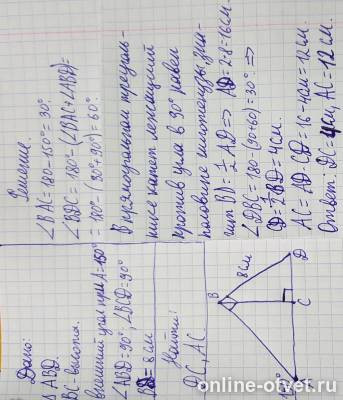 Дано:
△ ABD.
BC - высота.
внешний угол при A = 150°
∠ABD = 90°, ∠BCD = 90°
BD = 8 см
Найти:
DC, AC
B
8 см
D
C
A
150°
Решение
∠BAC = 180 - 150° = 30°
∠BDC = 180° - (∠BAC + ∠ABD) =
= 180° - (30° + 90°) = 60°
В прямоугольном треуголь-
нике катет лежащий
против угла в 30° равен
половине гипотенузы, зна-
чит BD = ½ AD ⇒ AD = 2·8 = 16 см.
∠DBC = 180 - (90 + 60) = 30° ⇒
CD = ½ BD = 4 см.
AC = AD - CD = 16 - 4 см = 12 см
Ответ: DC = 4 см, AC = 12 см.
online-otvet.ru